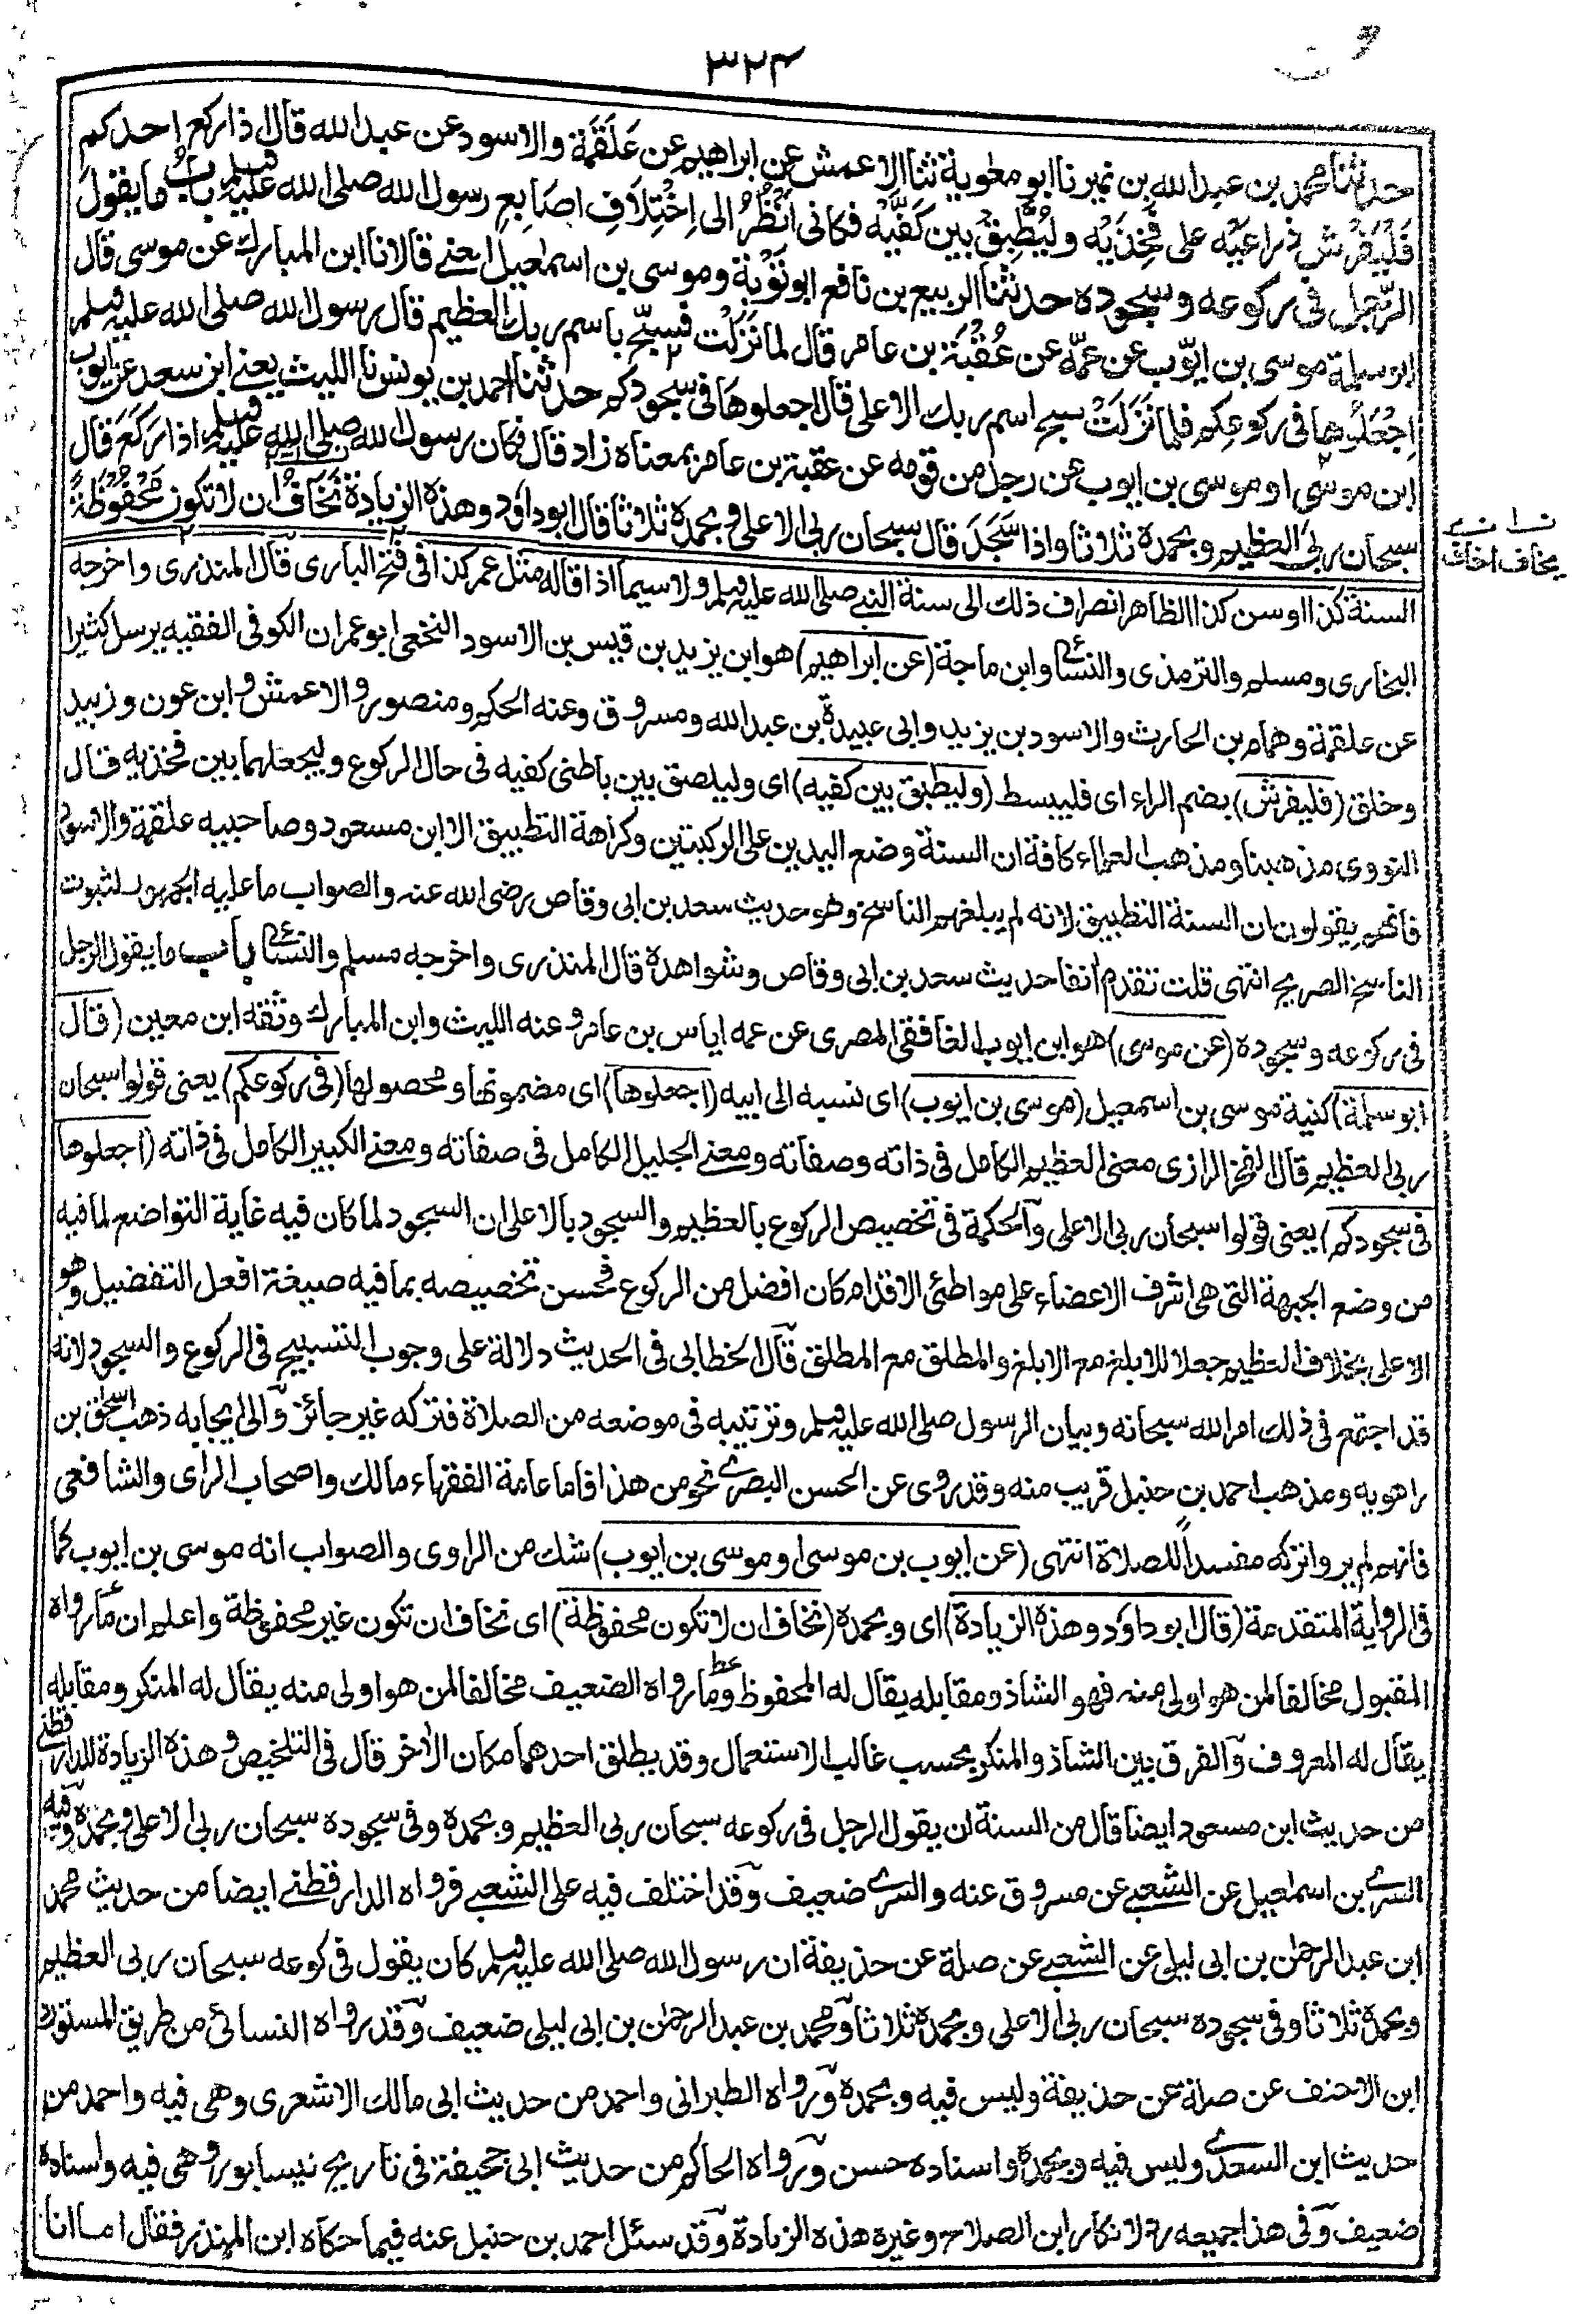 ٣٢٤
حدثنا محمد بن عبد الله بن نمير نا ابو معوية ثنا الاعمش عن ابراهيم عن عَلْقَمَة والاسود عن عبد الله قال اذا ركع احدكم
فَلْيَفْرُشْ ذراعَيْه على فَخِذَيْه وليُطَبِّقْ بين كَفَّيْه فكانى اَنْظُرُ الى اِخْتِلَافِ اصَابِعِ رسول الله صلى الله عليه وسلم بابُ ما يقول
الرَّجل فى ركوعه وسجوده حدثنا الربيع بن نافع ابو تَوْبة وموسى بن اسمعيل المعنى قالا نا ابن المبارك عن موسى قال
ابو سلمة موسى بن ايّوب عن عمّه عن عُقْبَة بن عامر قال لما نَزَلَتْ فسبّح باسم ربك العظيم قال رسول الله صلى الله عليه وسلم
اِجْعَلُوها فى ركوعكم فلما نَزَلَتْ سبح اسم ربك الاعلى قال اجعلوها فى سجودكم حدثنا احمد بن يونس نا الليث يعنى ابن سعد عن ايوب
ابن موسى او موسى بن ايوب عن رجل من قومه عن عقبة بن عامر بمعناه زاد قال فكان رسول الله صلى الله عليه وسلم اذا رَكَعَ قال
سبحان ربى العظيم وبحمده ثلاثا واذا سَجَدَ قال سبحان ربى الاعلى وبحمده ثلاثا قال ابو داود وهذه الزيادة نَخَافُ ان لا تكون مَحْفُوظَةً
يخاف اخاف
السنة كذا او سن كذا الظاهر انصراف ذلك الى سنة النبى صلى الله عليه وسلم ولا سيما اذا قاله مثل عمر كذا فى فتح البارى قال المنذرى واخرجه
البخارى ومسلم والترمذى والنسائى وابن ماجة (عن ابراهيم) هو ابن يزيد بن قيس بن الاسود النخعى ابو عمران الكوفى الفقيه يرسل كثيرا
عن علقمة وهمام بن الحارث والاسود بن يزيد وابى عبيدة بن عبد الله ومسروق وعنه الحكم ومنصور والاعمش وابن عون وزبيد
وخلق (فليفرش) بضم الراء اى فليبسط (وليطبق بين كفيه) اى وليلصق بين باطنى كفيه فى حال الركوع وليجعلهما بين فخذيه قال
النووى مذهبنا ومذهب العلماء كافة ان السنة وضع اليدين على الركبتين وكراهة التطبيق الا ابن مسعود وصاحبيه علقمة والاسود
فانهم يقولون ان السنة التطبيق لانه لم يبلغهم الناسخ وهو حديث سعد بن ابى وقاص رضى الله عنه والصواب ما عليه الجمهور لثبوت
الناسخ الصريح انتهى قلت تقدم انفا حديث سعد بن ابى وقاص وشواهده قال المنذرى واخرجه مسلم والنسائى باب ما يقول الرجل
فى ركوعه وسجوده (عن موسى) هو ابن ايوب الغافقى المصرى عن عمه اياس بن عامر وعنه الليث وابن المبارك وثقه ابن معين (قال
ابو سلمة) كنية موسى بن اسمعيل (موسى بن ايوب) اى نسبه الى ابيه (اجعلوها) اى مضمونها ومحصولها (فى ركوعكم) يعنى قولوا سبحان
ربى العظيم قال الفخر الرازى معنى العظيم الكامل فى ذاته وصفاته ومعنى الجليل الكامل فى صفاته ومعنى الكبير الكامل فى ذاته (اجعلوها
فى سجودكم) يعنى قولوا سبحان ربى الاعلى والحكمة فى تخصيص الركوع بالعظيم والسجود بالاعلى ان السجود لما كان فيه غاية التواضع لما فيه
من وضع الجبهة التى هى اشرف الاعضاء على مواطئ الاقدام كان افضل من الركوع فحسن تخصيصه بما فيه صيغة افعل التفضيل وهو
الاعلى بخلاف العظيم جعلا للابلغ مع الابلغ والمطلق مع المطلق قال الخطابى فى الحديث دلالة على وجوب التسبيح فى الركوع والسجود لانه
قد اجتمع فى ذلك امر الله سبحانه وبيان الرسول صلى الله عليه وسلم وترتيبه فى موضعه من الصلاة فتركه غير جائز والى ايجابه ذهب اسحق بن
راهويه ومذهب احمد بن حنبل قريب منه وقد روى عن الحسن البصرى نحو من هذا فاما عامة الفقهاء مالك واصحاب الراى والشافعى
فانهم لم يروا تركه مفسداً للصلاة انتهى (عن ايوب بن موسى او موسى بن ايوب) شك من الراوى والصواب انه موسى بن ايوب كما
فى الرواية المتقدمة (قال ابو داود وهذه الزيادة) اى وبحمده (نخاف ان لا تكون محفوظة) اى نخاف ان تكون غير محفوظة واعلم ان ما رواه
المقبول مخالفا لمن هو اولى منه فهو الشاذ ومقابله يقال له المحفوظ وما رواه الضعيف مخالفا لمن هو اولى منه يقال له المنكر ومقابله
يقال له المعروف والفرق بين الشاذ والمنكر بحسب غالب الاستعمال وقد يطلق احدهما مكان الاخر قال فى التلخيص وهذه الزيادة للدارقطنى
من حديث ابن مسعود ايضا قال من السنة ان يقول الرجل فى ركوعه سبحان ربى العظيم وبحمده وفى سجوده سبحان ربى الاعلى وبحمده وفيه
السرى بن اسمعيل عن الشعبى عن مسروق عنه والسرى ضعيف وقد اختلف فيه على الشعبى فرواه الدارقطنى ايضا من حديث محمد
ابن عبد الرحمن بن ابى ليلى عن الشعبى عن صلة عن حذيفة ان رسول الله صلى الله عليه وسلم كان يقول فى ركوعه سبحان ربى العظيم
وبحمده ثلاثا وفى سجوده سبحان ربى الاعلى وبحمده ثلاثا ومحمد بن عبد الرحمن بن ابى ليلى ضعيف وقد رواه النسائى من طريق المستورد
ابن الاحنف عن صلة عن حذيفة وليس فيه وبحمده ورواه الطبرانى واحمد من حديث ابى مالك الاشعرى وهى فيه واحمد من
حديث ابن السعدى وليس فيه وبحمده واسناده حسن ورواه الحاكم من حديث ابى جحيفة فى تاريخ نيسابور وهى فيه واسناده
ضعيف وفى هذا جميعه رد لانكار ابن الصلاح وغيره هذه الزيادة وقد سئل احمد بن حنبل عنه فيما حكاه ابن المنذر فقال اما انا